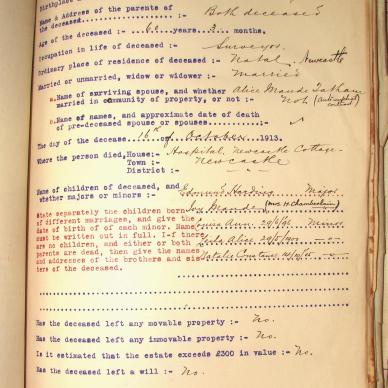 Birthplace
Name & Address of the parents of
the deceased Both deceased
Age of the deceased :- years 3 months.
Occupation in life of deceased :- Surveyor.
Ordinary place of residence of deceased :- Natal, Newcastle
Married or unmarried, widow or widower :- Married
a. Name of surviving spouse, and whether Alice Maude Tatham
married in community of property, or not :- Not (Antenuptial contract)
b. Name of names, and approximate date of death
of pre-deceased spouse or spouses :-
The day of the decease 16th of October 1913.
Where the person died, House:- Hospital, Newcastle Cottage-
Town :- Newcastle
District :-
Name of children of deceased, and
whether majors or minors :- Edmund Harding Major
State separately the children born Maude (Mrs H. Chamberlain)
of different marriages, and give the
date of birth of of each minor. Name Anna Minor
must be written out in full. I-f there
are no children, and either or both Alice
parents are dead, then give the names Natalie
and addresses of the brothers and sis
ters of the deceased.
Has the deceased left any movable property :- No.
Has the deceased left any immovable property :- No.
Is it estimated that the estate exceeds £300 in value :- No.
Has the deceased left a will :- No.